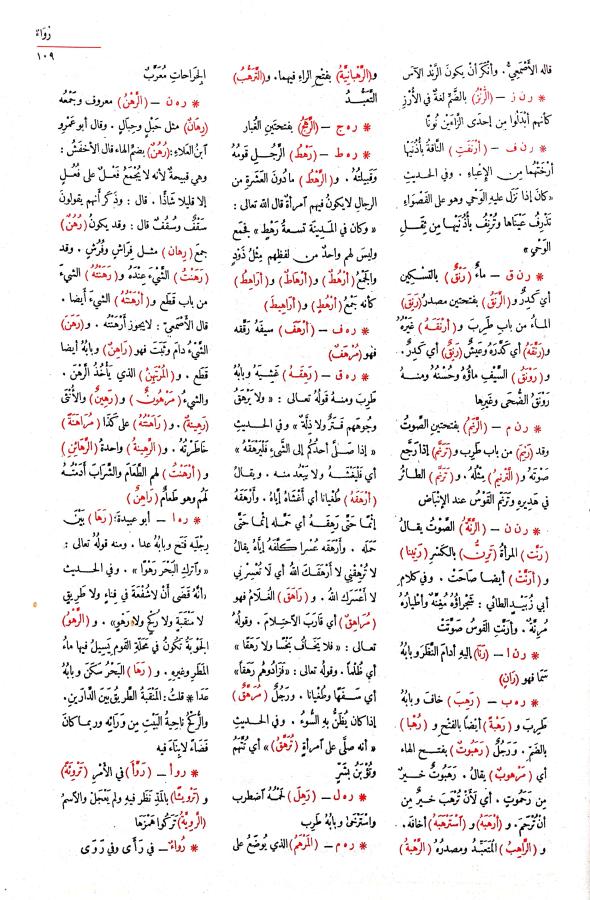 رُوَاء
١٠٩
قاله الأَصْمَعِيُّ . وأنْكَرَ أنْ يكونَ الرَّنْدُ الآسَ
* ر ن ز – (الرُّنْزُ) بالضَّم لغةٌ في الأُرْزِ
كأنهم أبْدَلُوا من إحدَى الزَّايَيْن نُونًا
* ر ن ف – (أرْنَفَتِ) النَّاقةُ بأُذُنَيْها
أرْخَتْهُما من الإعْياءِ . وفي الحديثِ
«كانَ إذا نَزَل عليه الوَحْيُ وهو على القَصْوَاءِ
تَذْرِفُ عَيْناها وتُرْنِفُ بأُذُنَيْها من ثِقَلِ
الوَحْيِ»
* ر ن ق – ماءٌ (رَنْقٌ) بالتَّسكينِ
أي كَدِرٌ و (الرَّنَقُ) بفتحتين مصدرُ (رَنِقَ)
الماءُ من بابِ طَرِبَ و (أرْنَقَهُ) غَيْرُهُ
و (رَنَّقَهُ) أي كَدَّرَهُ وعَيْشٌ (رَنِقٌ) أي كَدِرٌ .
و (رَوْنَقُ) السَّيْفِ ماؤُه وحُسْنُه ومنــه
رَوْنَقُ الضُّحَى وغيرِها
* ر ن م – (الرَّنَمُ) بفتحتين الصَّوتُ
وقد (رَنِمَ) من باب طَرِبَ و (تَرَنَّم) إذا رَجَّع
صَوْتَه و (التَّرنيمُ) مِثْلُه . و (تَرَنَّم) الطَّائرُ
في هَديرِهِ وتَرَنَّمَ القَوْسُ عند الإنْبَاضِ
* ر ن ن – (الرَّنَّةُ) الصَّوْتُ يقالُ
(رَنَّت) المرأةُ (تَرِنُّ) بالكَسْرِ (رَنِينا)
و (أرَنَّتْ) أيضا صاحَتْ . وفي كلام
أبي زُبَيْدٍ الطائي : شَجْراؤُه مُغِنَّة وأطيارُه
مُرِنَّةٌ . وأرَنَّتِ القَوْسُ صَوَّتَتْ
* ر ن ا – (رَنَا) إليه أدامَ النَّظَرَ وبابُهُ
سَمَا فهو (رَانٍ)
* ر ه ب – (رَهِبَ) خافَ وبابُهُ
طَرِبَ و (رَهْبَةً) أيضًا بالفتحِ و (رُهْبا)
بالضَّمِّ . ورَجُلٌ (رَهَبُوتٌ) بفتــحِ الهاء
أي (مَرْهوبٌ) يقالُ . رَهَبُوتٌ خيــرٌ
من رَحَمُوتٍ . أي لَأَنْ تُرْهَبَ خيرٌ من
أنْ تُرْحَم . و (أرْهَبَهُ) و (اسْتَرْهَبَهُ) أخافَه .
و (الرَّاهِبُ) المُتَعَبِّدُ ومصدرُه (الرَّهْبةُ)
و (الرَّهْبانيَّةُ) بفتح الراءِ فيهما . و (التَّرَهُّبُ)
التَّعَبُّــدُ
* ر ه ج – (الرَّهَجُ) بفتحتَينِ الغُبار
* ر ه ط – (رَهْطُ) الرَّجُــلِ قَومُهُ
وقَبيلَتُهُ . و (الرَّهْطُ) مادُونَ العَشَرةِ من
الرجالِ لايكونُ فيهم امرأةٌ قال الله تعالى :
«وكان في المدينَةِ تسعةُ رَهْطٍ» فجُمع
وليسَ لهم واحدٌ من لفظِهم مِثْلُ ذَوْدٍ
والجمْعُ (أرْهُطٌ) و (أرْهاطٌ) و (أراهِطُ)
كأنه جَمْعُ (أرْهُطٍ) و (أراهِيطُ)
* ر ه ف – (أرْهَفَ) سيفَه رَقَّقَه
فهو (مُرْهَفٌ)
* ر ه ق – (رَهِقَــهُ) غَشِيَــهُ وبابُهُ
طَرِبَ ومنهُ قولُه تعالى : «ولا يَرْهَقُ
وُجوهَهم قَتَرٌ ولا ذِلَّة» وفي الحديثِ
«إذا صَلَّى أحدُكُم إلى الشَّيءِ فَلْيَرْهَقْهُ»
أي فَلْيَغْشَــهُ ولا يَبْعُدْ منه . ويقــالُ
(أرْهَقَهُ) طُغْيانا أي أغْشَاهُ إيَّاهُ . وأرْهَقَهُ
إثمًــا حتَّى رَهِقَــهُ أي حَمَّله إثمًــا حتَّى
حَمَلَه . وأرْهَقَه عُسْرا كَلَّفَهُ إيَّاهُ يقالُ
لا تُرْهِقْني لا أرْهَقَكَ اللهُ أي لا تُعْسِرْني
لا أعْسَرَكَ اللهُ . و (رَاهَقَ) الغُلامُ فهو
(مُرَاهِقٌ) أي قارَبَ الاحْتِلامَ . وقولُه
تعالى : «فلا يَخَافُ بَخْسًا ولا رَهَقا»
أي ظُلْمًا . وقوله تعالى : «فَزَادُوهم رَهَقا»
أي سَــفَهًا وطُغْيَانا . ورَجُلٌ (مُرَهَّقٌ)
إذا كان يُظَنُّ بهِ السُّوءُ . وفي الحديثِ
«أنه صلَّى على امرأةٍ (تُرَهَّقُ)» أي تُتَّهَمُ
وتُؤْبَنُ بِشَرٍّ
* ر ه ل – (رَهِلَ) لَحْمُهُ اضطرب
واسْتَرْخَى وبابُهُ طَرِب
* ر ه م – (المَرْهَمُ) الذي يُوضَعُ على
الجِراحاتِ مُعَرَّبٌ
* ر ه ن – (الرَّهْنُ) معروف وجَمْعُه
(رِهانٌ) مثل حَبْلٍ وحِبالٍ . وقال أبو عَمْرِو
ابنُ العَلاءِ : (رُهُنٌ) بضم الهاء قال الأخفَشُ :
وهي قبيحةٌ لأنه لا يُجْمَعُ فَعْلٌ على فُعُلٍ
إلا قليلا شاذًّا . قال : وذَكَر أنهم يقولونَ
سَقْفٌ وسُقُفٌ قال : وقد يكونُ (رُهُنٌ)
جمعَ (رِهانٍ) مثــل فِرَاشٍ وفُرُشٍ . وقد
(رَهَنْتُ) الشَّيْءَ عنْدَه و (رَهَنْتُهُ) الشَّيءَ
من بابِ قَطَع و (أرْهَنْتُهُ) الشَّيءَ أيضا .
قال الأصْمَعيُّ : لايجوز أرْهَنْتُه . و (رَهَنَ)
الشَّيْءُ دَامَ وثَبَتَ فهو (رَاهِنٌ) وبابُهُ أيضا
قَطع . و (المُرْتَهِنُ) الذي يأخُذُ الرَّهْنَ .
والشيءُ (مَرْهُونٌ) و (رَهِينٌ) والأُنْثَى
(رَهِينةٌ) . و (رَاهَنَهُ) على كَذَا (مُرَاهَنَةً)
خاطَرَهُ . و (الرَّهِينَةُ) واحدةُ (الرَّهائِنِ)
و (أرْهَنْتُ) لهم الطَّعامَ والشَّرابَ أدَمْتُــهُ
لَهُمْ وهو طَعامٌ (رَاهِنٌ)
* ر ه ا – أبو عبيدةَ : (رَهَا) بَيْنَ
رِجْلَيْه فَتَح وبابُهُ عدا . ومنه قولُه تعالى :
«واترُكِ البَحرَ رَهْوًا» . وفي الحديث
«أنه قَضَى أنْ لاشُفْعَةَ في فِناءٍ ولا طَريقٍ
لا مَنْقَبَةٍ ولا رُكْحٍ ولا رَهْوٍ» . و (الرَّهْوُ)
الجَوْبَةُ تكُونُ في مَحَلَّةِ القَوم يَسيلُ فيها ماءُ
المَطَرِ وغيرِه . و (رَهَا) البَحْرُ سَكَنَ وبابُهُ
عَدَا * قلتُ : المَنْقَبَةُ الطَّرِيقُ بَيْنَ الدَّارَيْنِ .
والرُّكْحُ ناحِيةُ البَيْتِ مِن وَرَائِه وربما كانَ
فَضَاءً لابِنَاءَ فيه
* ر و أ – (رَوَّأَ) في الأَمْرِ (تَرْوِئَةً)
و (تَرْوِيئًا) بالمَدِّ نَظَر فيهِ ولم يَعْجَل والاسمُ
(الرَّوِيَّةُ) تَرَكُوا هَمْزَها
* رُوَاءٌ – في رَ أَ ى وفي رَ وَ ى